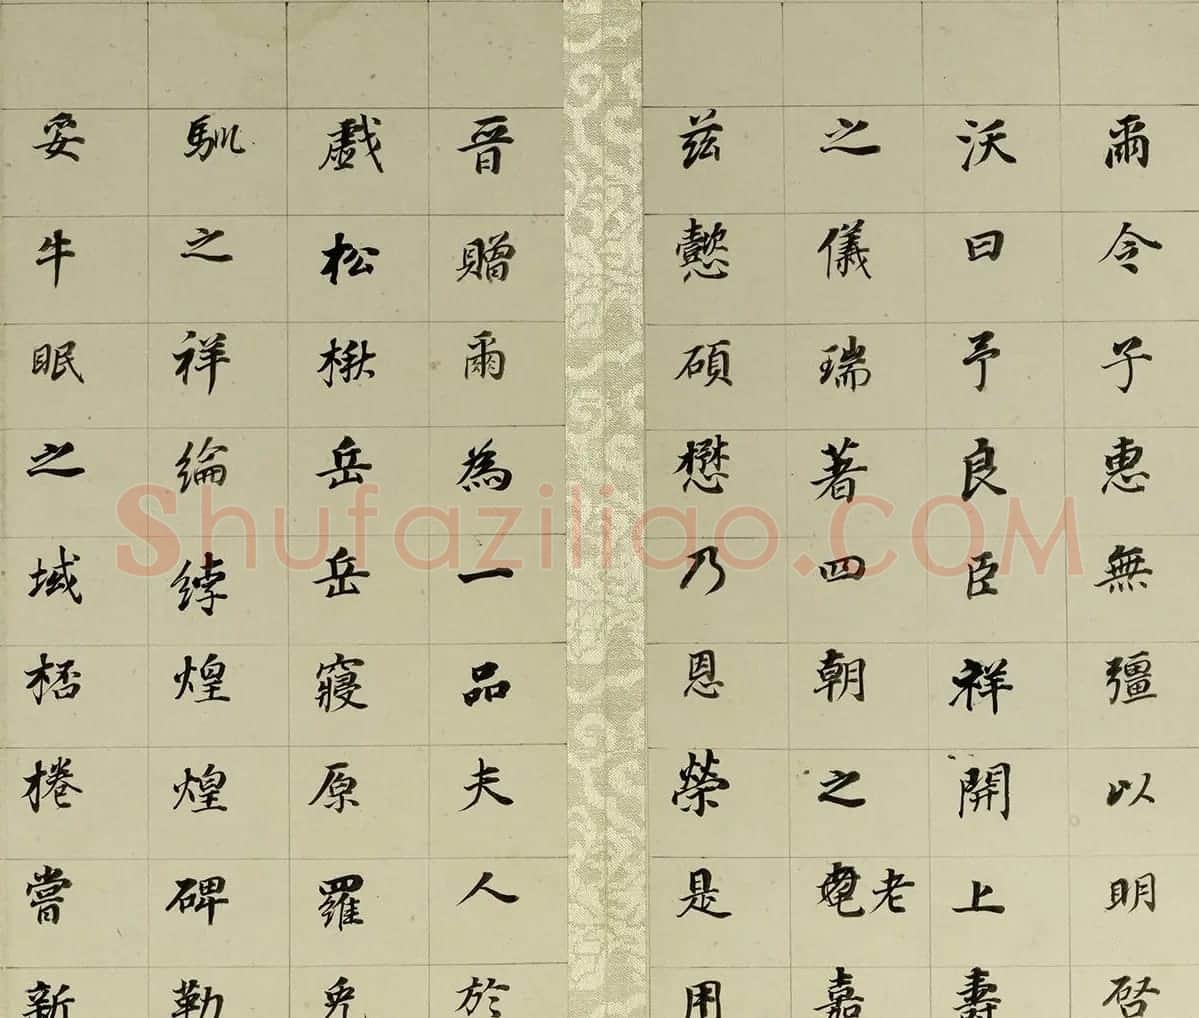 爾令子惠無彊以明啓
沃曰予良臣祥開上壽
之儀瑞著四朝之老嘉
兹懿碩懋乃恩榮是用
晉贈爾為一品夫人於
戲松楸岳岳寢原羅
馴之祥綸綍煌煌碑勒
妥牛眠之域桮棬嘗新
Shufaziliao.COM